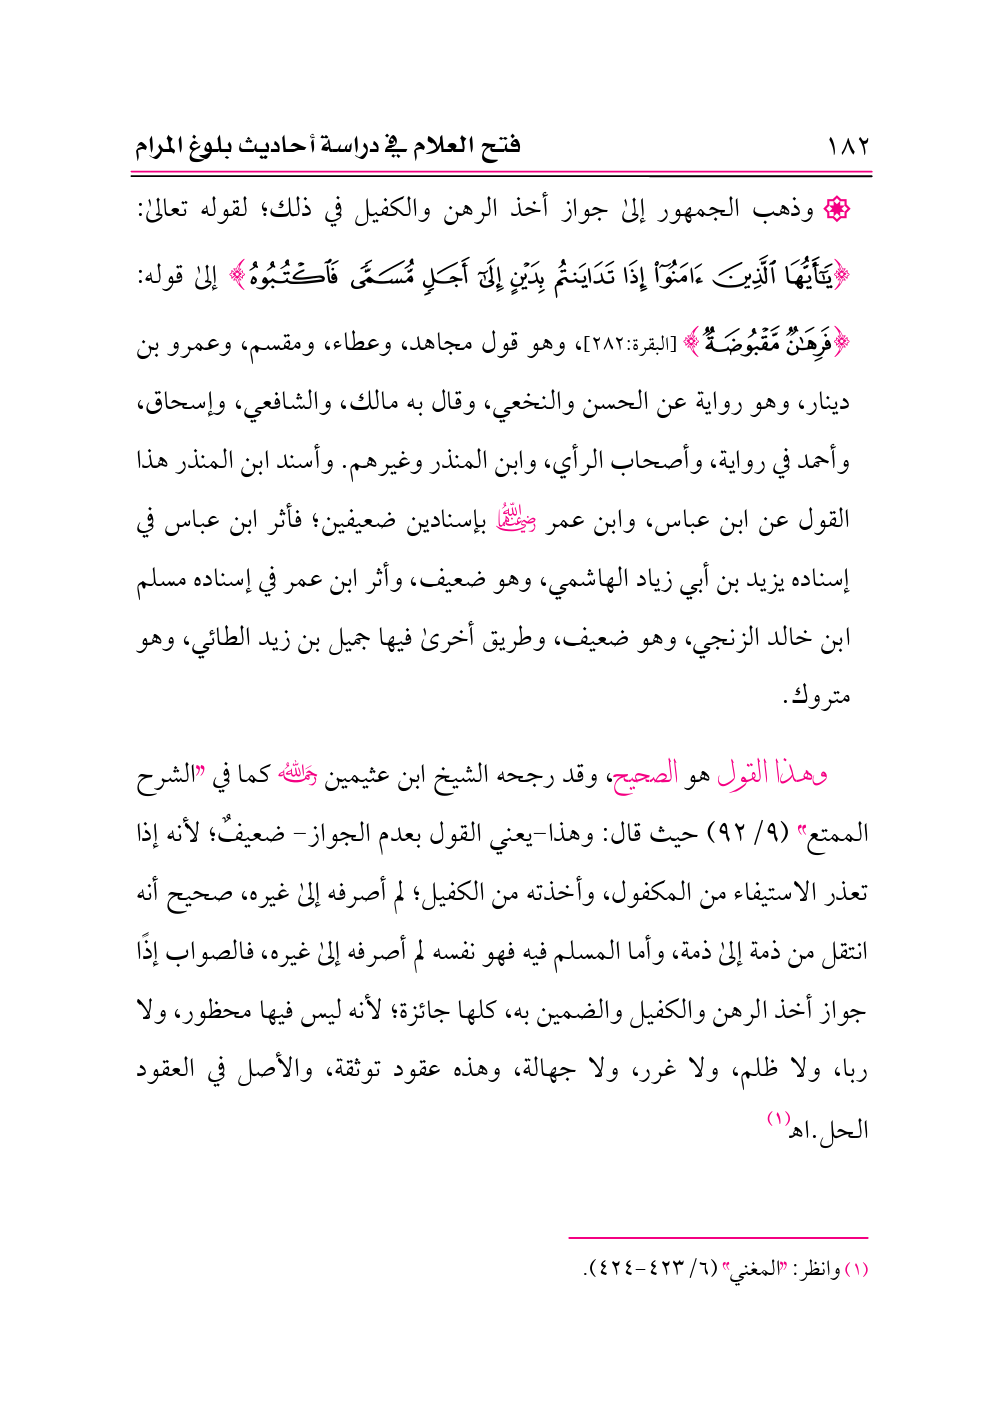 ١٨٢ فتح العلام في دراسة أحاديث بلوغ المرام
وذهب الجمهور إلىٰ جواز أخذ الرهن والكفيل في ذلك؛ لقوله تعالىٰ:
﴿يَٰٓأَيُّهَا ٱلَّذِينَ ءَامَنُوٓاْ إِذَا تَدَايَنتُم بِدَيۡنٍ إِلَىٰٓ أَجَلٖ مُّسَمّٗى فَٱكۡتُبُوهُ﴾ إلىٰ قوله:
﴿فَرِهَٰنٞ مَّقۡبُوضَةٞ﴾ [البقرة:٢٨٢]، وهو قول مجاهد، وعطاء، ومقسم، وعمرو بن
دينار، وهو رواية عن الحسن والنخعي، وقال به مالك، والشافعي، وإسحاق،
وأحمد في رواية، وأصحاب الرأي، وابن المنذر وغيرهم. وأسند ابن المنذر هذا
القول عن ابن عباس، وابن عمر رضي الله عنهما بإسنادين ضعيفين؛ فأثر ابن عباس في
إسناده يزيد بن أبي زياد الهاشمي، وهو ضعيف، وأثر ابن عمر في إسناده مسلم
ابن خالد الزنجي، وهو ضعيف، وطريق أخرىٰ فيها جميل بن زيد الطائي، وهو
متروك.
وهذا القول هو الصحيح، وقد رجحه الشيخ ابن عثيمين رحمه الله كما في "الشرح
الممتع" (٩/ ٩٢) حيث قال: وهذا-يعني القول بعدم الجواز- ضعيفٌ؛ لأنه إذا
تعذر الاستيفاء من المكفول، وأخذته من الكفيل؛ لم أصرفه إلىٰ غيره، صحيح أنه
انتقل من ذمة إلىٰ ذمة، وأما المسلم فيه فهو نفسه لم أصرفه إلىٰ غيره، فالصواب إذًا
جواز أخذ الرهن والكفيل والضمين به، كلها جائزة؛ لأنه ليس فيها محظور، ولا
ربا، ولا ظلم، ولا غرر، ولا جهالة، وهذه عقود توثقة، والأصل في العقود
الحل.اهـ(١)
(١) وانظر: "المغني" (٦/ ٤٢٣-٤٢٤).